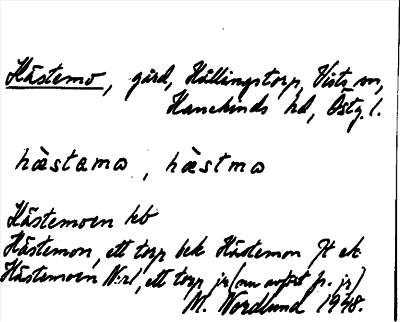 Hästemo, gård, Hällingstorp, Vists sn,
Hanekinds hd, Östg. l.
hæ̀stamω, hæ̀stmω
Hästemoen hb
Hästemon, ett torp bek Hästemon Jt ek
Hästemoen N:r 1, ett torp jr (nu avfört fr. jr)
M. Nordlund 1948.